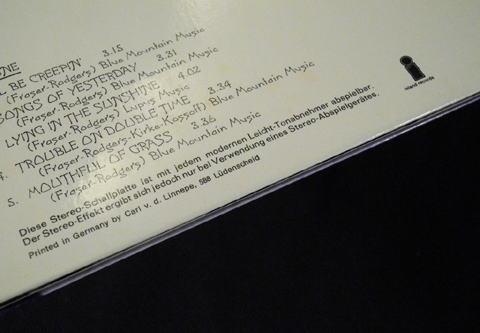 NE
L BE CREEPIN' 3.15
(Fraser-Rodgers) Blue Mountain Music
SONGS OF YESTERDAY 3.31
(Fraser-Rodgers) Blue Mountain Music
LYING IN THE SUNSHINE 4.02
(Fraser-Rodgers) Lupus Music
4. TROUBLE ON DOUBLE TIME 3.34
(Fraser-Rodgers-Kirke-Kossoff) Blue Mountain Music
5. MOUTHFUL OF GRASS 3.36
(Fraser-Rodgers) Blue Mountain Music
Diese Stereo-Schallplatte ist mit jedem modernen Leicht-Tonabnehmer abspielbar.
Der Stereo-Effekt ergibt sich jedoch nur bei Verwendung eines Stereo-Abspielgerätes.
Printed in Germany by Carl v. d. Linnepe, 588 Lüdenscheid
i
island records